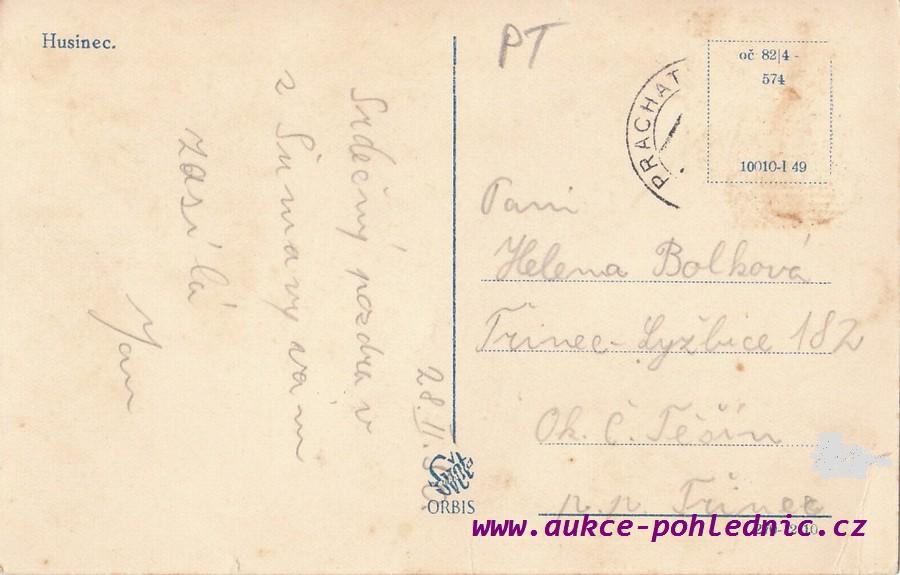 Husinec.
Srdečný pozdrav
z Šumavy vám
zasílá
Jan
28.II.
PT
PRACHAT
oč 82|4 -
574
10010-I 49
Paní
Helena Bolková
Třinec-Lyžbice 182
Ok. Č. Těšín
p.p. Třinec
ORBIS
www.aukce-pohlednic.cz